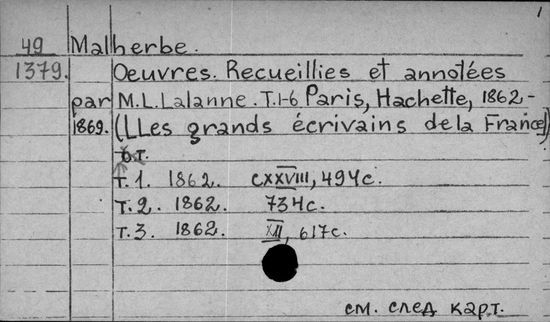 1
49 Malherbe.
1379. Oeuvres. Recueillies et annotées
par M.L.Lalanne. T.1-6 Paris, Hachette, 1862-
1869. (LLes grands écrivains dela France)
6т.
т.1. 1862. CXXVIII, 494с.
т.2. 1862. 734с.
т.3. 1862. XII, 617с.
см. след карт.